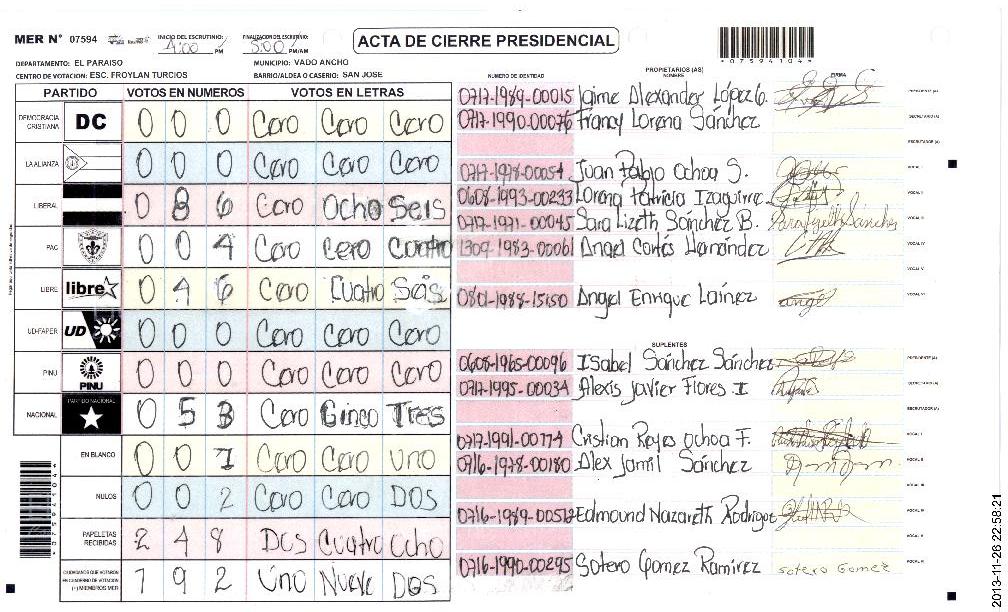 MER N° 07594 INICIO DEL ESCRUTINIO: 4:00 PM FINALIZACION DEL ESCRUTINIO: 5:00 PM/AM
ACTA DE CIERRE PRESIDENCIAL
*07594104*
DEPARTAMENTO: EL PARAISO MUNICIPIO: VADO ANCHO
CENTRO DE VOTACION: ESC. FROYLAN TURCIOS BARRIO/ALDEA O CASERIO: SAN JOSE
PARTIDO VOTOS EN NUMEROS VOTOS EN LETRAS
DEMOCRACIA CRISTIANA DC 0 0 0 Cero Cero Cero
LA ALIANZA 0 0 0 Cero Cero Cero
LIBERAL 0 8 6 Cero Ocho Seis
PAC 0 0 4 Cero Cero Cuatro
LIBRE libre 0 4 6 Cero Cuatro Seis
UD-FAPER UD 0 0 0 Cero Cero Cero
PINU PINU 0 0 0 Cero Cero Cero
NACIONAL PARTIDO NACIONAL 0 5 3 Cero Cinco Tres
EN BLANCO 0 0 1 Cero Cero Uno
NULOS 0 0 2 Cero Cero Dos
PAPELETAS RECIBIDAS 2 4 8 Dos Cuatro Ocho
CIUDADANOS QUE VOTARON EN CUADERNO DE VOTACION (+) MIEMBROS MER 1 9 2 Uno Nueve Dos
PROPIETARIOS (AS)
NUMERO DE IDENTIDAD NOMBRE FIRMA
0717-1989-00015 Jaime Alexander López G. PRESIDENTE (A)
0717-1990-00076 Francy Lorena Sánchez SECRETARIO (A)
ESCRUTADOR (A)
0717-1978-00054 Juan Pablo Ochoa S. VOCAL I
0608-1993-00233 Lorena Patricia Izaguirre VOCAL II
0717-1971-00045 Sara Lizeth Sánchez B. Sara Lizeth Sánchez VOCAL III
1309-1983-00061 Angel Cortés Hernández VOCAL IV
VOCAL V
0801-1988-15150 Angel Enrique Laínez angel VOCAL VI
SUPLENTES
0608-1965-00096 Isabel Sánchez Sánchez PRESIDENTE (A)
0717-1995-00034 Alexis Javier Flores I SECRETARIO (A)
ESCRUTADOR (A)
0717-1991-00774 Cristian Reyes Ochoa F. VOCAL I
0716-1978-00180 Alex Jamil Sánchez VOCAL II
VOCAL III
0716-1989-00512 Edmound Nazareth Rodriguez VOCAL IV
VOCAL V
0716-1990-00295 Sotero Gomez Ramírez sotero Gomez VOCAL VI
*07594104*
2013-11-26 22:58:21